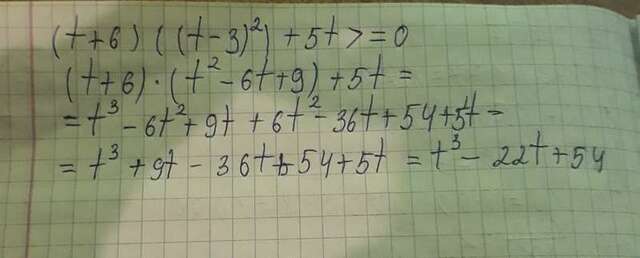 (t+6)((t-3)²)+5t>=0
(t+6)·(t²-6t+9)+5t=
=t³-6t²+9t+6t²-36t+54+5t-
=t³+9t-36t+54+5t=t³-22t+54